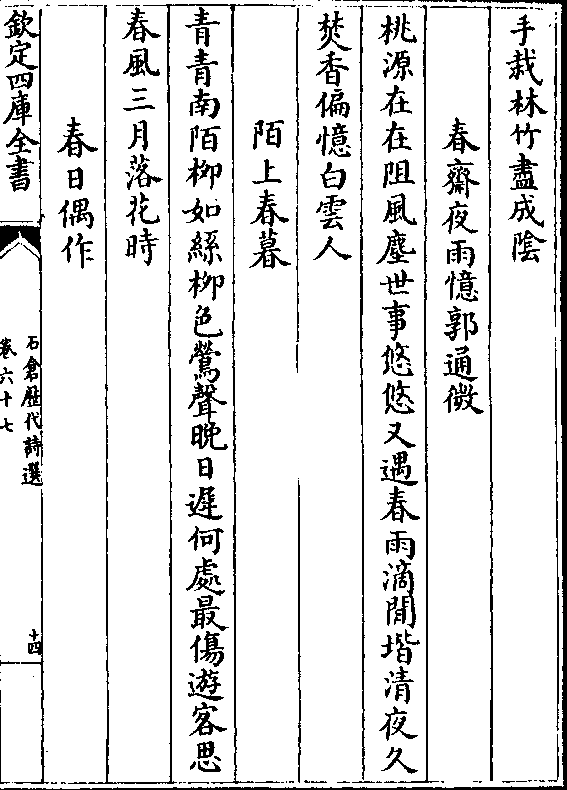 手栽林竹盡成陰
春齋夜雨憶郭通微
桃源在在阻風塵世事悠悠又遇春雨滴閒堦清夜久
焚香偏憶白雲人
陌上春暮
青青南陌柳如絲柳色鶯聲晚日遲何處最傷遊客思
春風三月落花時
春日偶作
欽定四庫全書
石倉歴代詩選
卷六十七
十四